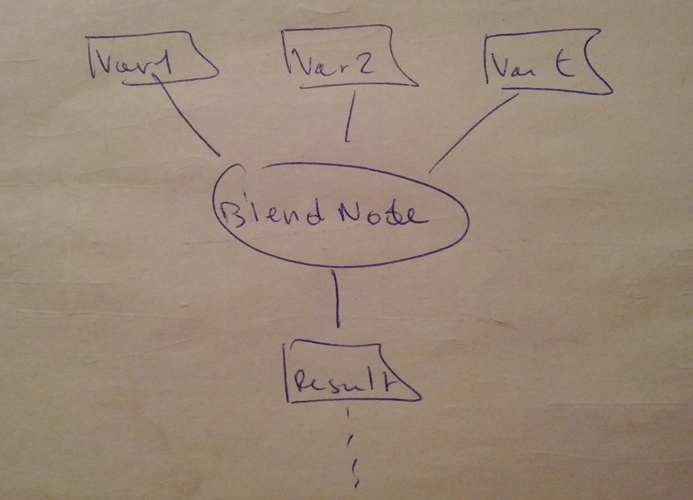 Var1
Var2
Var t
Blend Node
Result